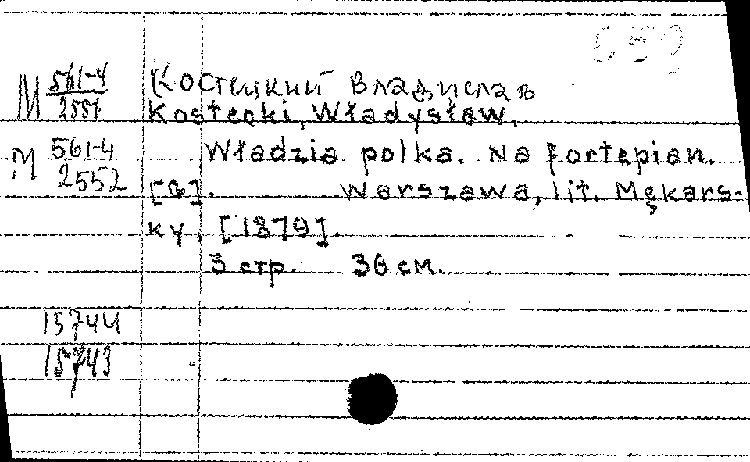 М 561-4
2551
Костецкий Владислав
Kostecki, Władysław.
М 561-4
2552
Władzia polka. Na fortepian.
[G]. Warszawa, lit. Mękars-
ky, [1879].
3 стр. 36 см.
15744
15743